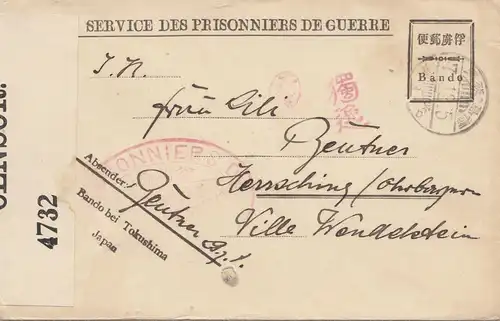 SERVICE DES PRISONNIERS DE GUERRE
俘虜郵便
Bando
I. N.
獨
Frau Lili
Zeutner
Herrsching / Oberbayern
Ville Wendelstein
ONNIER
Absender:
Zeutner
Bando bei Tokushima
Japan
CENSOR.
4732